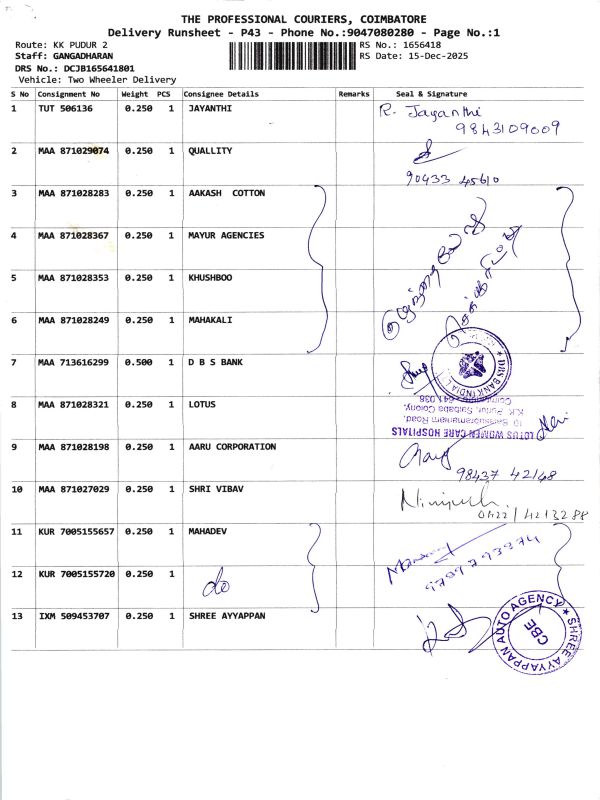 THE PROFESSIONAL COURIERS, COIMBATORE
Delivery Runsheet - P43 - Phone No.:9047080280 - Page No.:1
Route: KK PUDUR 2
Staff: GANGADHARAN
DRS No.: DCJB165641801
Vehicle: Two Wheeler Delivery
RS No.: 1656418
RS Date: 15-Dec-2025
S No Consignment No Weight PCS Consignee Details Remarks Seal & Signature
1 TUT 506136 0.250 1 JAYANTHI R. Jayanthi
9843109009
2 MAA 871029074 0.250 1 QUALLITY
90433 45610
3 MAA 871028283 0.250 1 AAKASH COTTON
4 MAA 871028367 0.250 1 MAYUR AGENCIES
5 MAA 871028353 0.250 1 KHUSHBOO
6 MAA 871028249 0.250 1 MAHAKALI
7 MAA 713616299 0.500 1 D B S BANK
DBS BANK INDIA L
8 MAA 871028321 0.250 1 LOTUS
LOTUS WOMEN CARE HOSPITALS
10 Balasubramaniam Road,
K.K. Pudur, Saibaba Colony,
Coimbatore - 641 038
9 MAA 871028198 0.250 1 AARU CORPORATION
98437 42148
10 MAA 871027029 0.250 1 SHRI VIBAV
0422/4213288
11 KUR 7005155657 0.250 1 MAHADEV
12 KUR 7005155720 0.250 1 do
13 IXM 509453707 0.250 1 SHREE AYYAPPAN
SHREE AYYAPPAN AUTO AGENCY
CBE